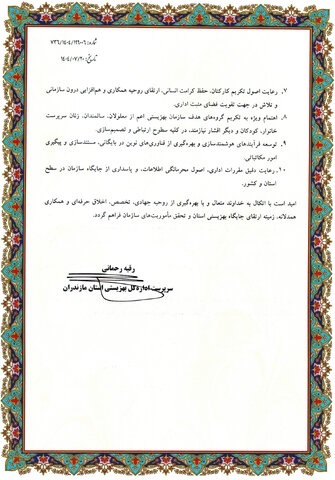 شماره: ۷۳۶/۱۴۰۴/۱۹۹۰۰۶
تاریخ: ۱۴۰۴/۰۷/۲۰
۷. رعایت اصول تکریم کارکنان، حفظ کرامت انسانی، ارتقای روحیه همکاری و هم‌افزایی درون سازمانی
و تلاش در جهت تقویت فضای مثبت اداری.
۸. اهتمام ویژه به تکریم گروه‌های هدف سازمان بهزیستی اعم از معلولان، سالمندان، زنان سرپرست
خانوار، کودکان و دیگر اقشار نیازمند، در کلیه سطوح ارتباطی و تصمیم‌سازی.
۹. توسعه فرآیندهای هوشمندسازی و بهره‌گیری از فناوری‌های نوین در بایگانی، مستندسازی و پیگیری
امور مکاتباتی.
۱۰. رعایت دقیق مقررات اداری، اصول محرمانگی اطلاعات، و پاسداری از جایگاه سازمان در سطح
استان و کشور.
امید است با اتکال به خداوند متعال و با بهره‌گیری از روحیه جهادی، تخصص، اخلاق حرفه‌ای و همکاری
همدلانه، زمینه ارتقای جایگاه بهزیستی استان و تحقق مأموریت‌های سازمان فراهم گردد.
رقیه رحمانی
سرپرست اداره کل بهزیستی استان مازندران